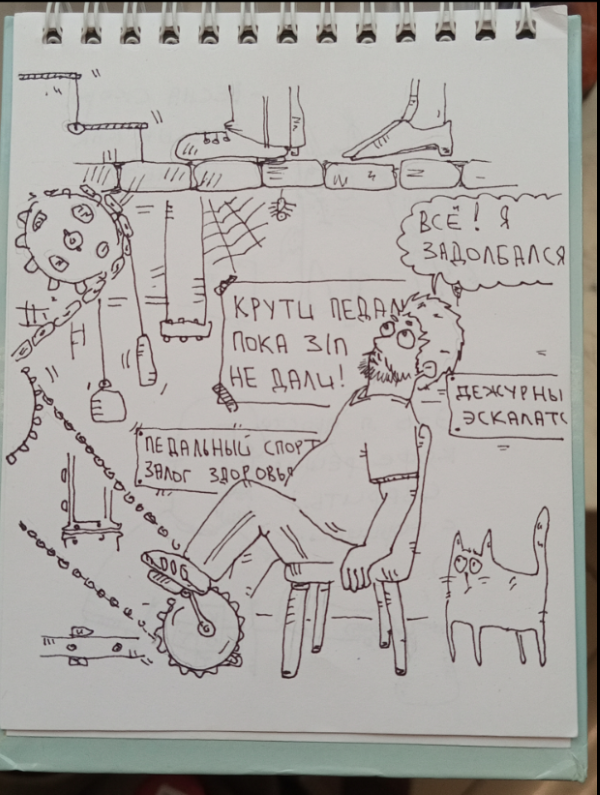 ВСЁ! Я
ЗАДОЛБАЛСЯ
КРУТИ ПЕДАЛ
ПОКА З/П
НЕ ДАЛИ!
ДЕЖУРНЫ
ЭСКАЛАТО
ПЕДАЛЬНЫЙ СПОРТ
ЗАЛОГ ЗДОРОВЬЯ